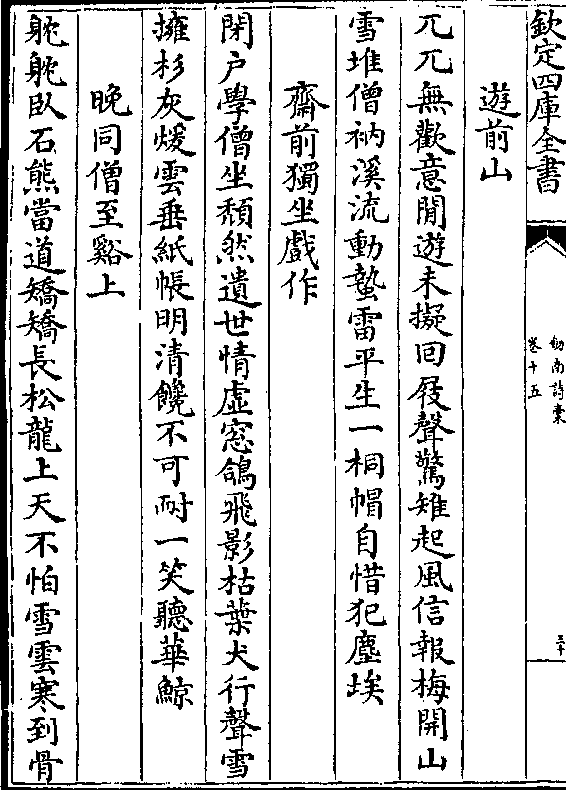 欽定四庫全書
劍南詩稾
卷十五
三十
遊前山
兀兀無歡意閒遊未擬回屐聲驚雉起風信報梅開山
雪堆僧衲溪流動蟄雷平生一桐帽自惜犯塵埃
齋前獨坐戲作
閉户學僧坐頽然遺世情虛窓鴿飛影枯葉犬行聲雪
擁杉灰煖雲垂紙帳明清饞不可耐一笑聽華鯨
晚同僧至谿上
躭躭臥石熊當道矯矯長松龍上天不怕雪雲寒到骨